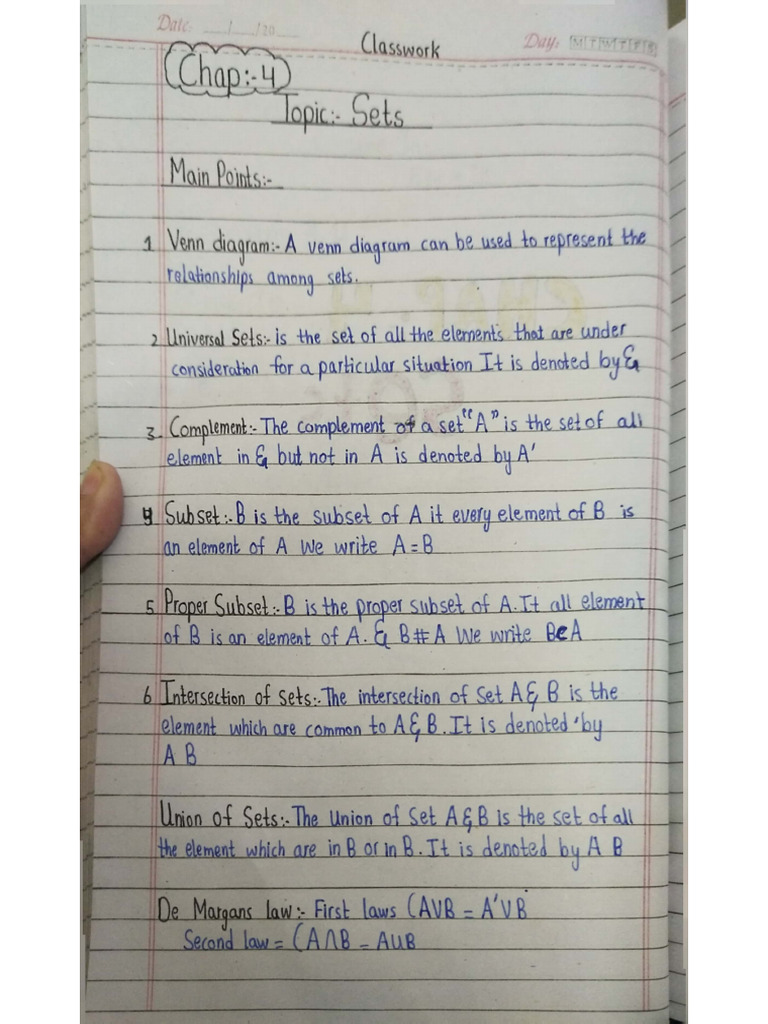 Date: __/__/20__
Classwork
Day: M T W T F S
Chap:-4
Topic:- Sets
Main Points:-
1 Venn diagram:- A venn diagram can be used to represent the
relationships among sets.
2 Universal Sets:- is the set of all the elements that are under
consideration for a particular situation It is denoted by &
3. Complement:- The complement of a set "A" is the set of all
element in & but not in A is denoted by A'
4 Subset:- B is the subset of A it every element of B is
an element of A We write A = B
5 Proper Subset:- B is the proper subset of A. It all element
of B is an element of A. & B # A We write BeA
6 Intersection of sets:- The intersection of Set A & B is the
element which are common to A & B. It is denoted by
A B
Union of Sets:- The Union of Set A & B is the set of all
the element which are in B or in B. It is denoted by A B
De Margans law:- First laws (AVB = A'VB
Second law = (A∩B - AUB